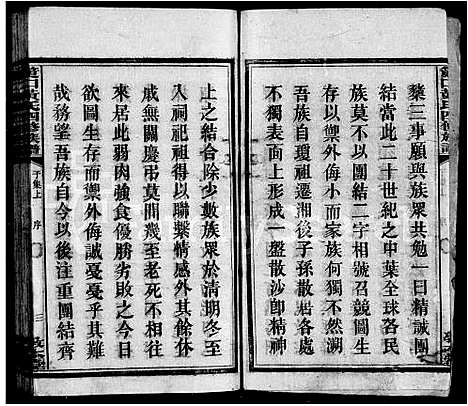 黃氏四修族譜
藥三事願與族眾共勉一曰精誠團
結當此二十世紀之中葉全球各民
族莫不以團結二字相號召競圖生
存以禦外侮小而家族何獨不然溯
吾族自始祖遷湘後子孫散居各處
不獨表面上形成一盤散沙即精神
上之結合除少數族眾於清明冬至
入祠祀祖得以聯繫情感外其餘休
戚無關慶弔莫聞遇有外侮鮮不敗
於此弱肉強食優勝劣敗之今日
欲圖生存而禦外侮誠憂憂乎其難
哉務望吾族自今以後注重團結齊
黃氏四修族譜
子集上
序
三